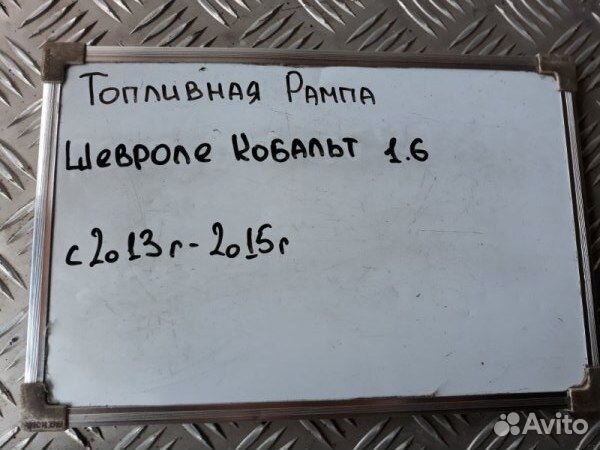 Топливная Рампа
Шевроле Кобальт 1.6
с 2013г - 2015г
Avito